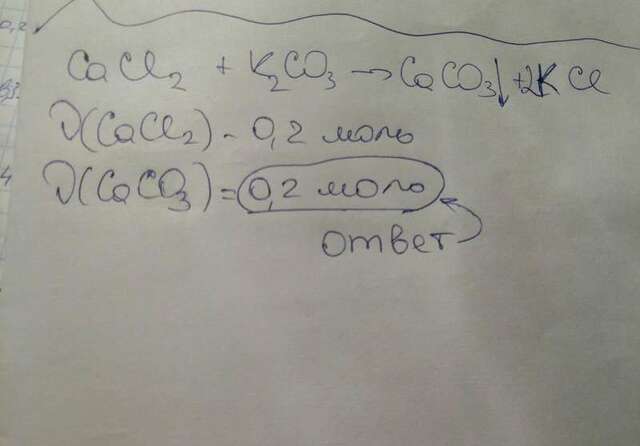 CaCl₂ + K₂CO₃ → CaCO₃↓ + 2KCl
ν(CaCl₂) - 0,2 моль
ν(CaCO₃) = 0,2 моль
ответ